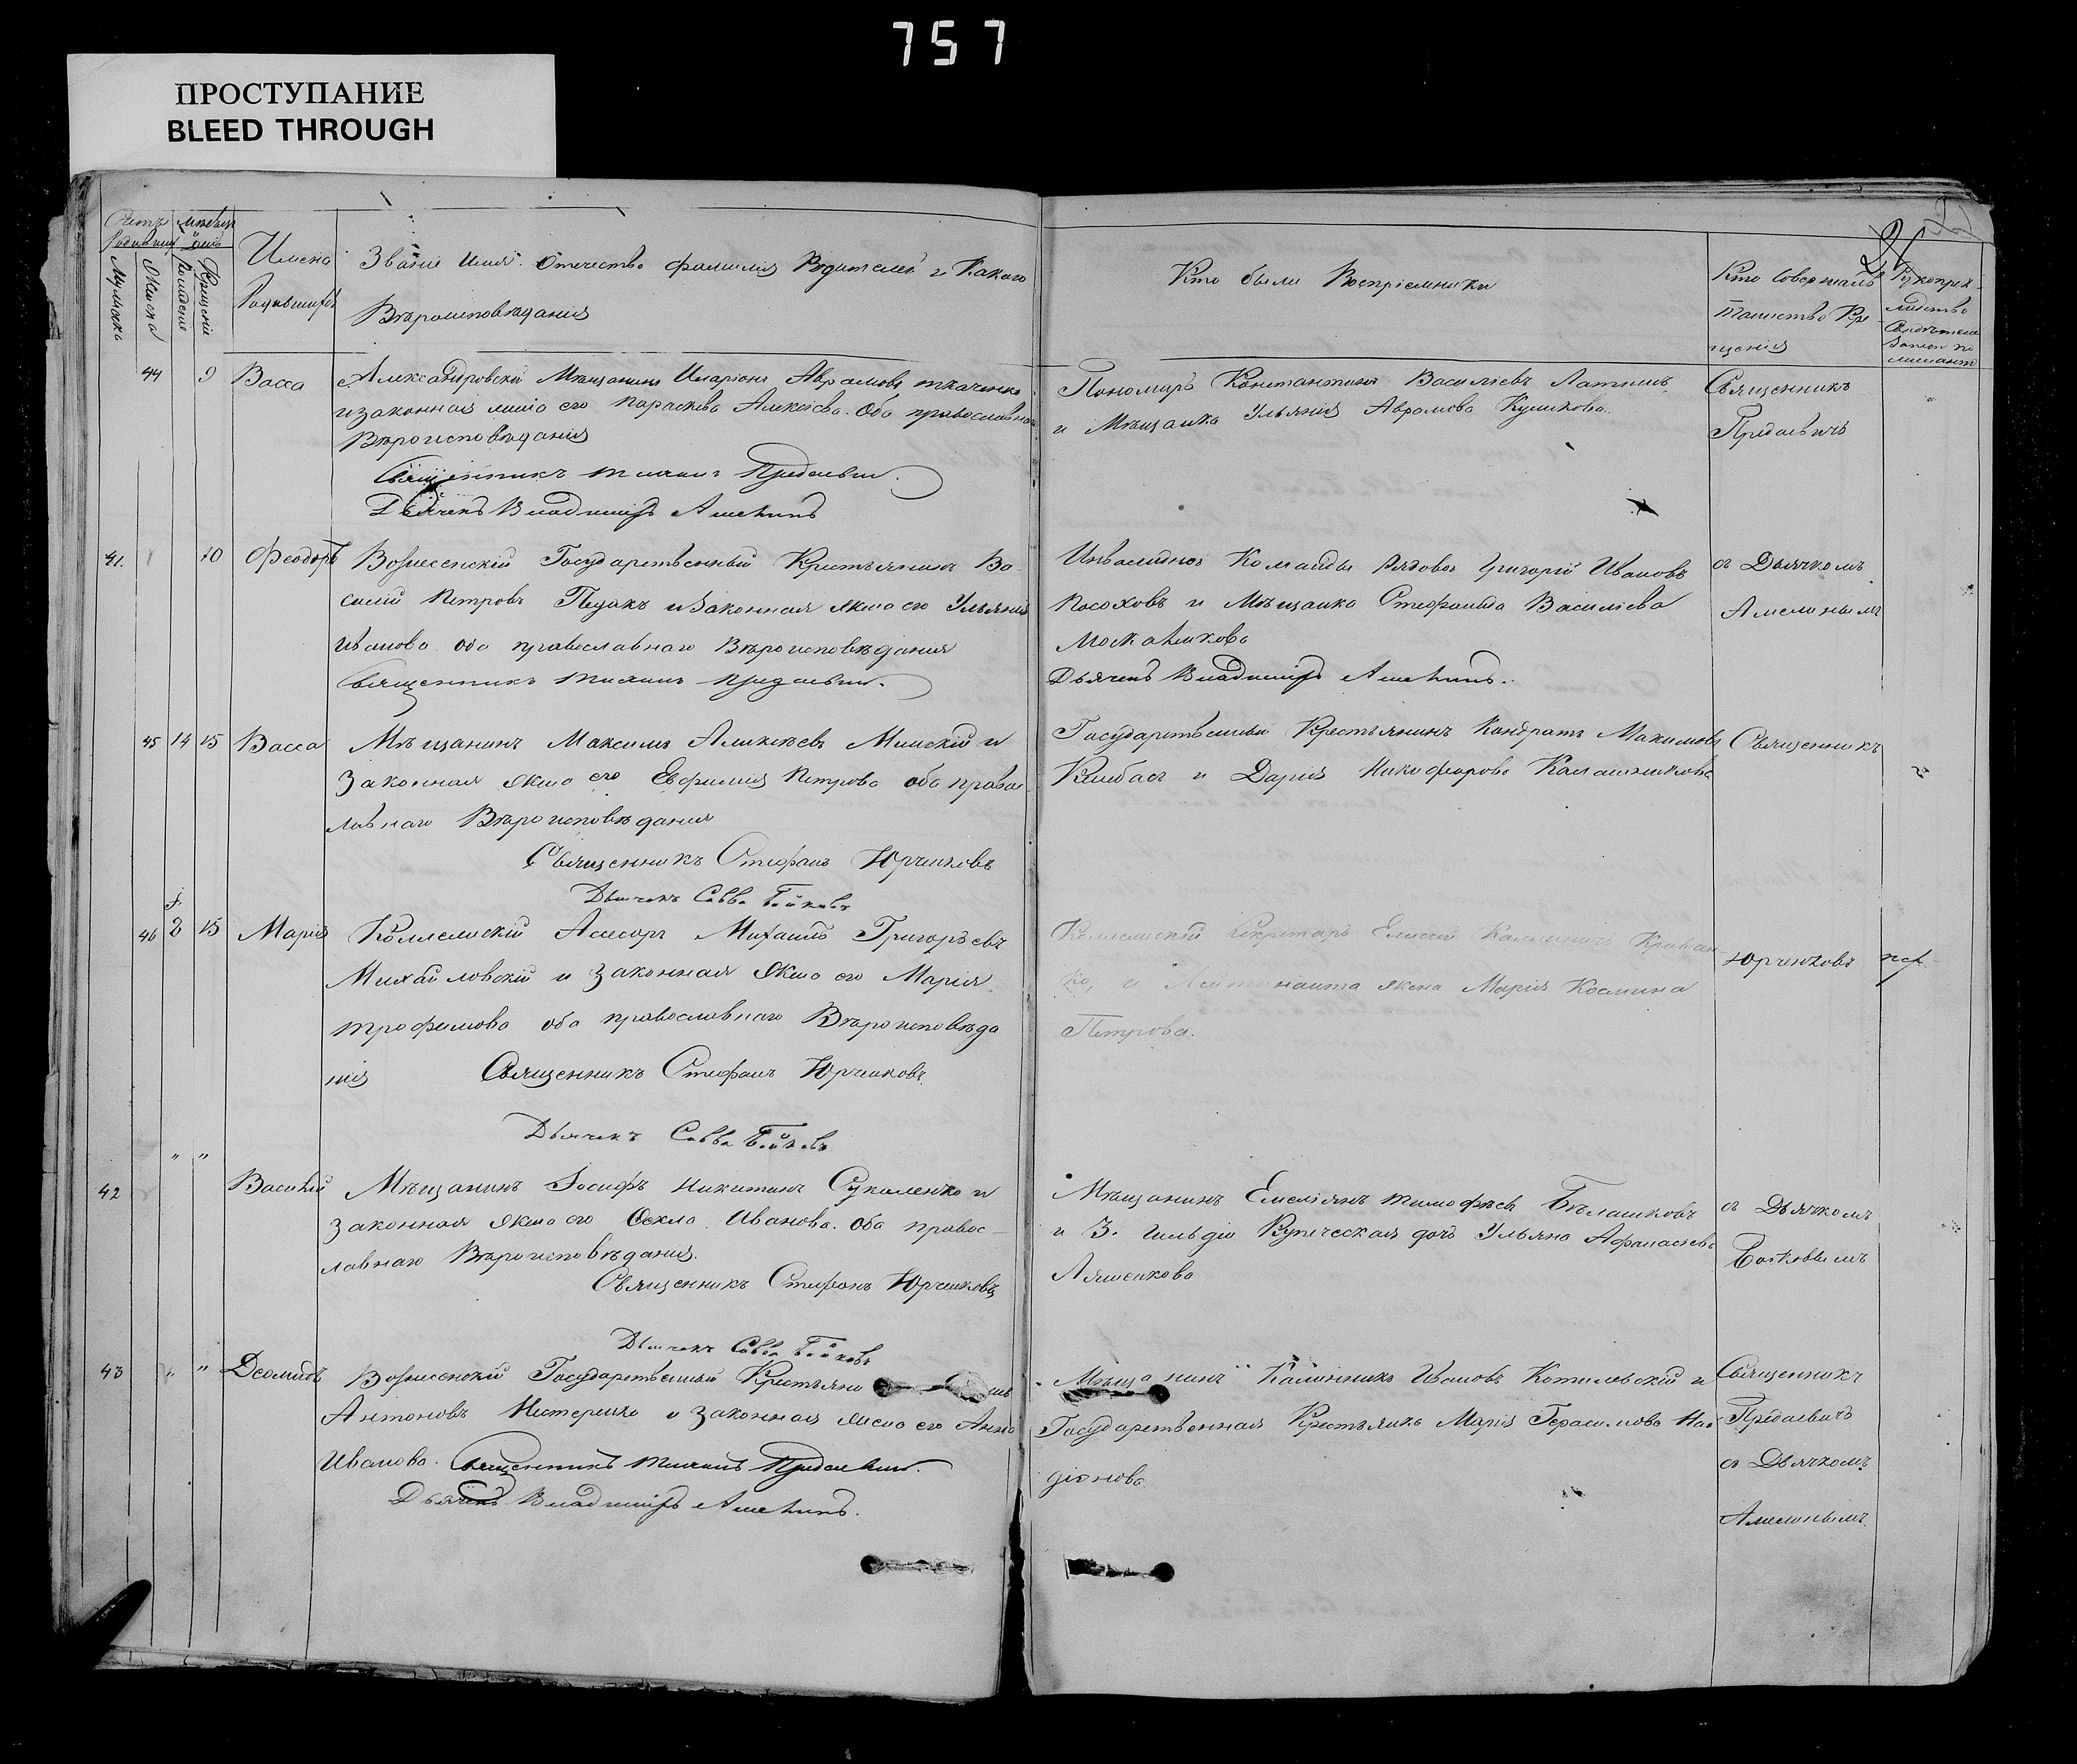 757
ПРОСТУПАНИЕ
BLEED THROUGH
Счетъ
Мѣсяцъ
и
день
Мужеска
Женска
Рожденiе
Крещенiе
Имена
Родившихся
Званiе Имя Отечество фамилiя Родителей и Какого
Вѣроисповѣданiя
Кто были Воспрiемники
Кто Совершалъ
Таинство Кре
щенiя
44 9 Васса
Александровскiй Мѣщанинъ Иларiонъ Аврамовъ Ткаченко
и законная жена его Параскева Алексѣева. Оба православнаго
Вѣроисповѣданiя
Священникъ Предаевич
Дьячекъ Владимiръ Амелинъ
Пономарь Константинъ Василiевъ
и Мѣщанка Ульянiя Аврамова Куликова
Священникъ
Предаевичъ
41. 10 Феодоръ
Вознесенскiй Государственный Крестьянинъ Ва
силiй Петровъ и законная жена его Ульянiя
Иванова оба православнаго Вѣроисповѣданiя
Священникъ Предаевич.
Инвалидной Команды Рядовой Григорiй Ивановъ
Посоховъ и Мѣщанка Стефанида Василiева
Москаликова
Дьячекъ Владимiръ Амелинъ.
съ Дьячкомъ
Амелинымъ
45 14 15 Васса
Мѣщанинъ Максимъ Алексѣевъ Минскiй и
Законная жена его Евфимiя Петрова оба правос
лавнаго Вѣроисповѣданiя
Священникъ Стефанъ Юрченковъ
Дьячекъ Савва Бойковъ
Государственный Крестьянинъ Кондратъ Макимовъ
и Дарiя Никифорова Калашникова
Священникъ
46 2 15 Марiя
Коллежскiй Асесоръ Михаилъ Григорьевъ
Михайловскiй и Законная жена его Марiя
Трофимова оба православнаго Вѣроисповѣда
нiя Священникъ Стефанъ Юрченковъ
Дьячекъ Савва Бойковъ
Колежскiй Секретарь Елисей Криван
ко, и Лейтенанта жена Марiя Космина
Петрова.
Юрченковъ
42 " " Василiй
Мѣщанинъ Iосифъ Никитинъ Сукаленко и
Законная жена его Фекла Иванова. Оба правос
лавнаго Вѣроисповѣданiя.
Священникъ Стефанъ Юрченковъ
Дьячекъ Савва Бойковъ
Мѣщанинъ Емелiянъ Тимофѣевъ Бѣлашковъ
и 3. гильдiи Купеческая дочь Ульяна Афанасiева
Ляшенкова
съ Дьячкомъ
Бойковымъ
43 " " Деомидъ
Вознесенскiй Государственный Крестьяни
Антоновъ Нестеренко и Законная жена его Анна
Иванова. Священникъ Предаевич.
Дьячекъ Владимiръ Амелинъ.
Мѣщанинъ Калинникъ Ивановъ Котилевскiй и
Государственная Крестьянка Марiя Герасимова На
дiонова
Священникъ
Предаевичъ
съ Дьячкомъ
Амелинымъ.